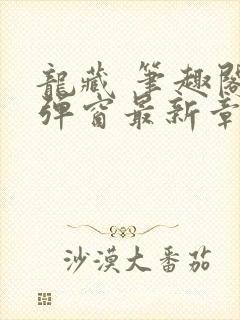 龍藏 筆趣閣
彈窗最新章
沙漠大番茄